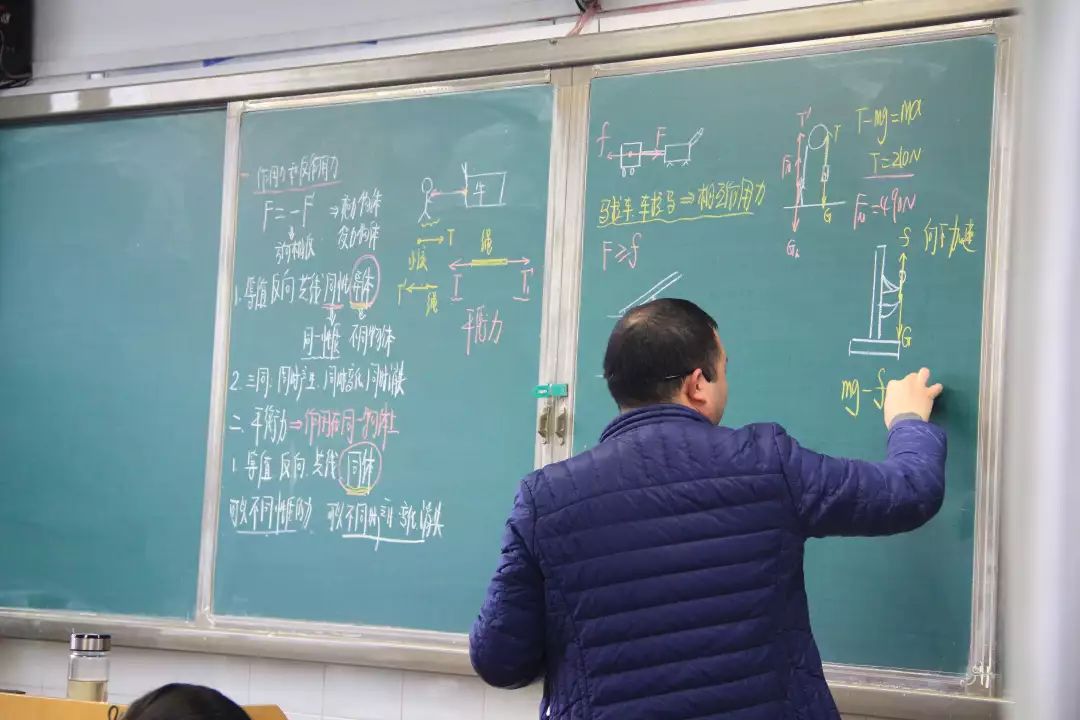 一 作用力和反作用力
F=-F ⇒ 施力物体
方向相反 受力物体
1. 等值 反向 共线 同性 异体
同一性质 不同物体
2. 三同: 同时产生, 同时变化, 同时消失
二. 平衡力 ⇒ 作用在同一物体上
1. 等值 反向. 共线. 同体
可以不同性质的力 可以不同时产生 变化 消失
牛
T
绳
T'
绳
平衡力
f F
马拉车, 车拉马 ⇒ 相互作用力
F≥f
T' T
G
T-mg=ma
T=210N
F_N=490N
f 向下加速
G
mg-f